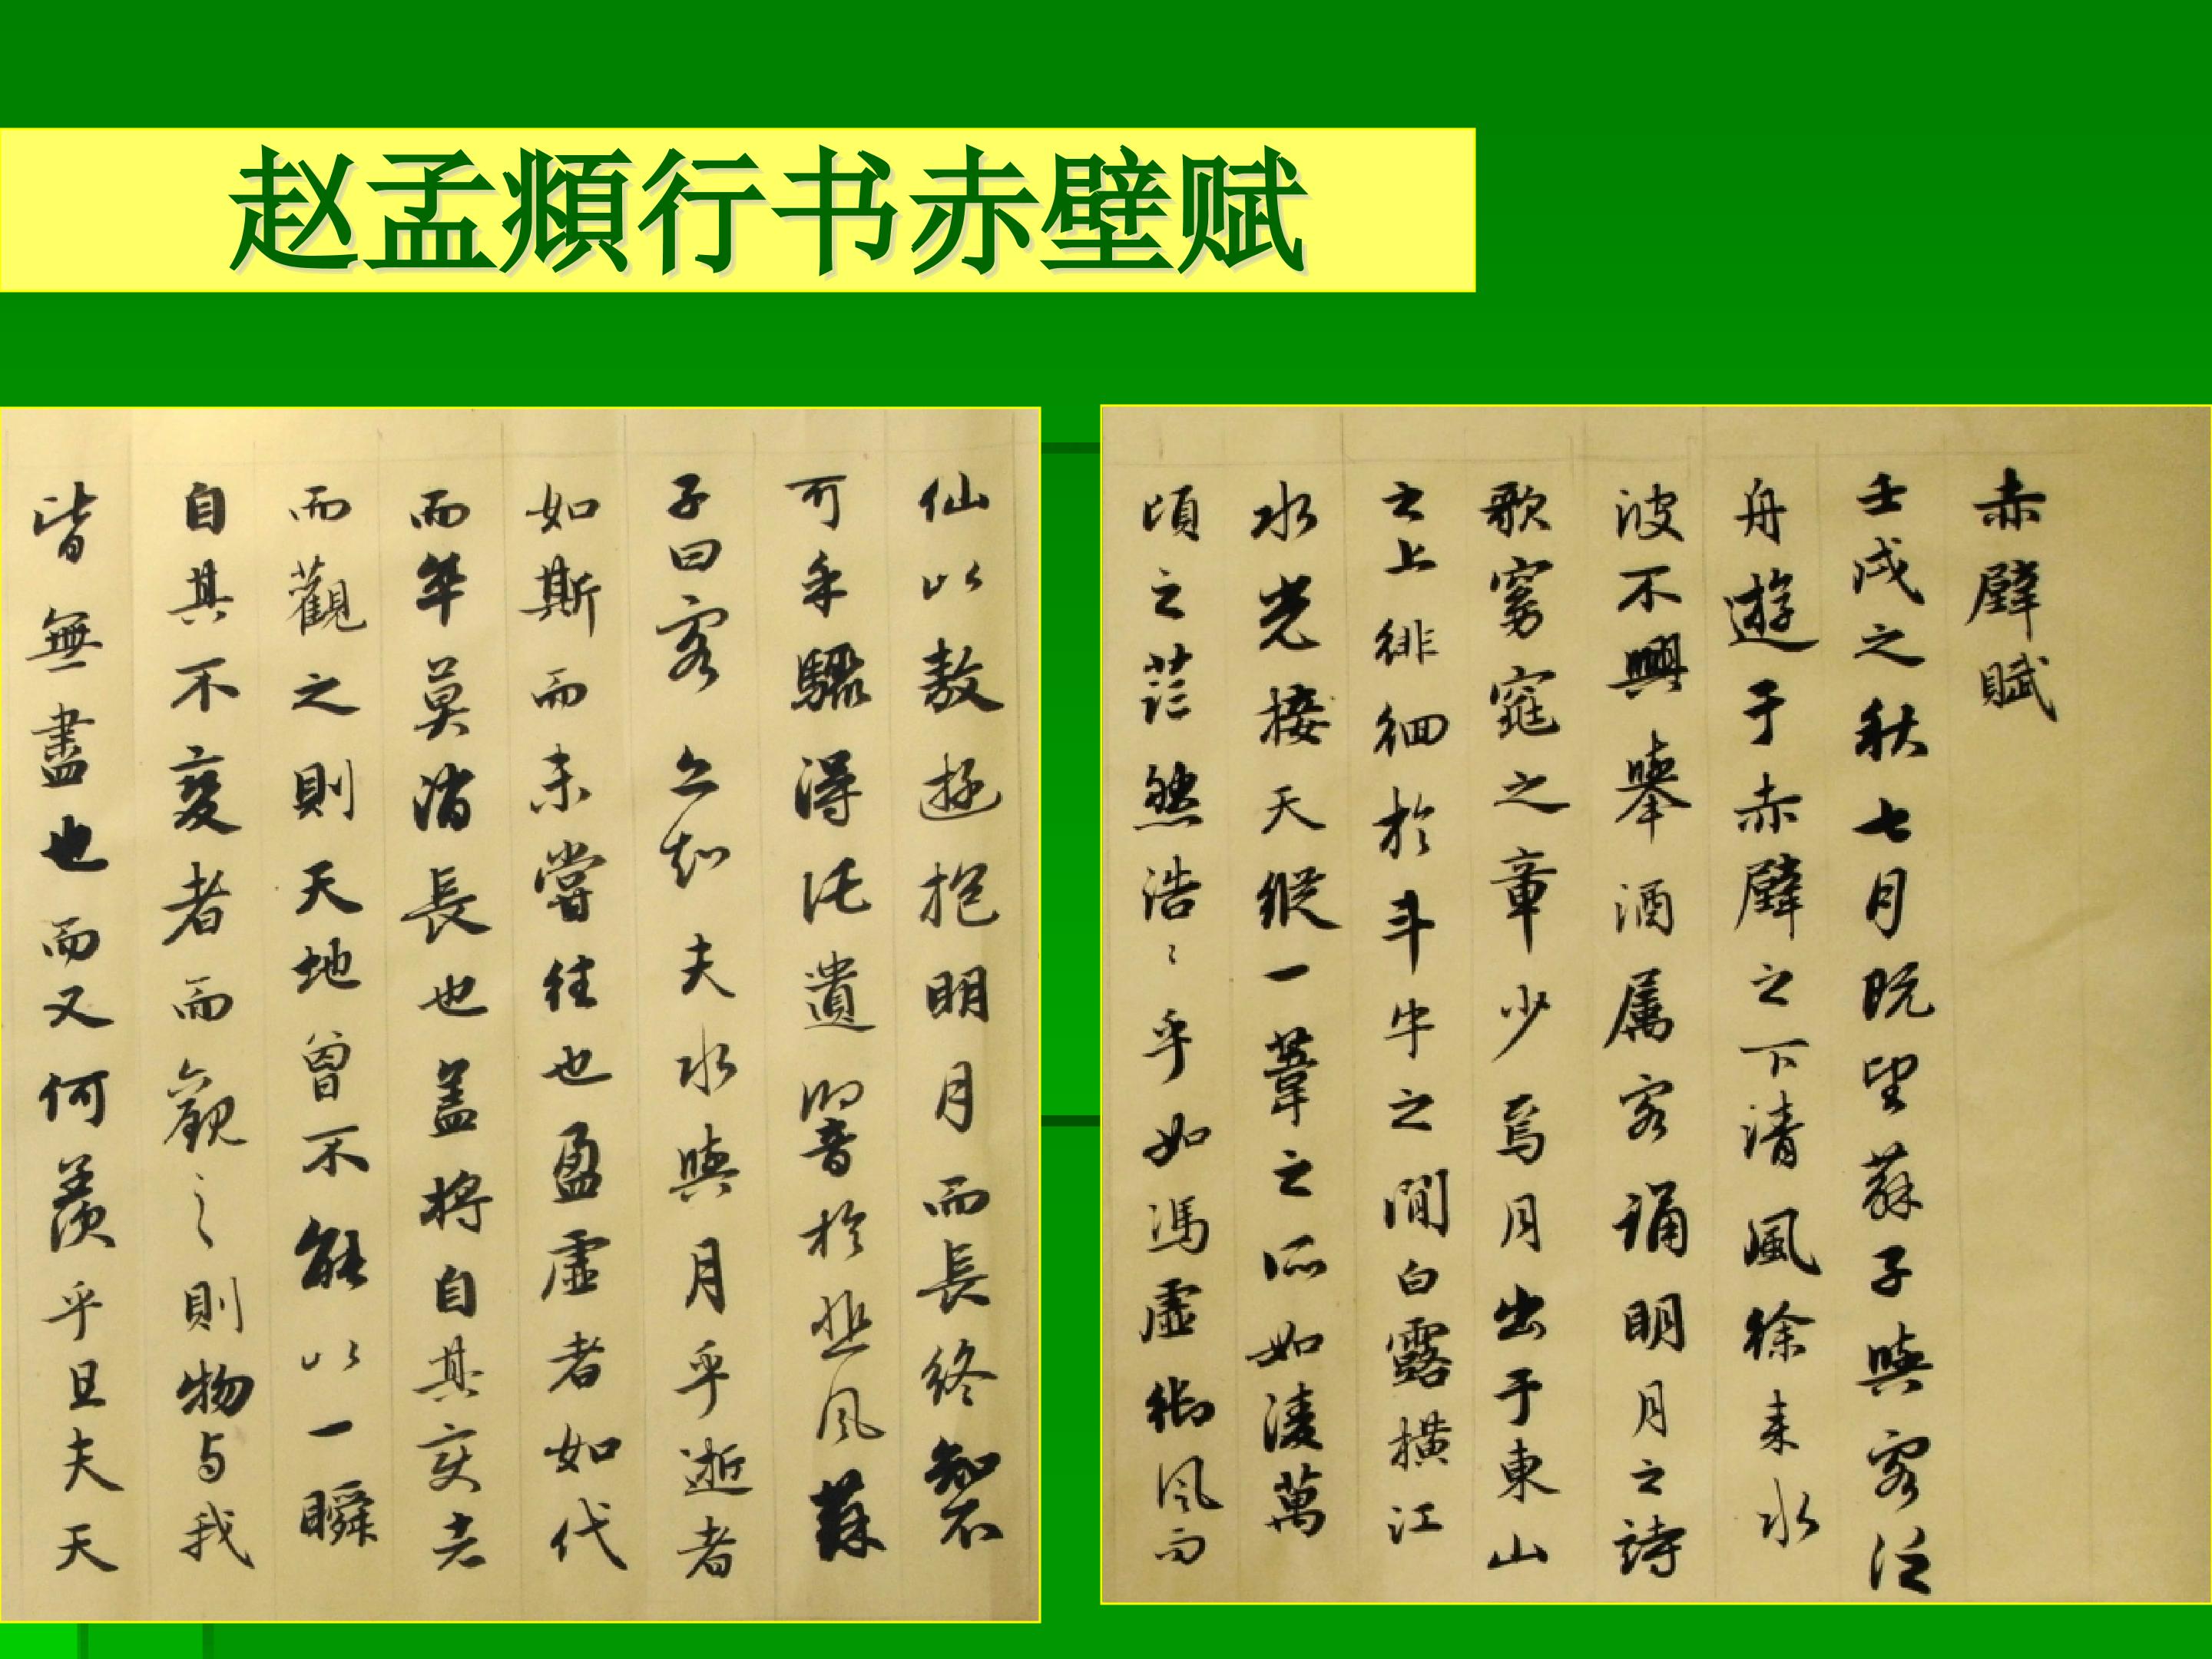 赵孟頫行书赤壁赋
赤壁賦
壬戌之秋七月既望蘇子與客泛
舟遊于赤壁之下清風徐来水
波不興舉酒属客誦明月之詩
歌窈窕之章少焉月出于東山
之上徘徊於斗牛之間白露横江
水光接天縱一葦之所如凌萬
頃之茫然浩〻乎如馮虛御風而
仙以敖遊抱明月而長終知不
可乎驟得託遺響於悲風蘇
子曰客亦知夫水與月乎逝者
如斯而未嘗往也盈虛者如代
而卒莫消長也盖將自其变者
而觀之則天地曾不能以一瞬
自其不變者而觀之則物与我
皆無盡也而又何羨乎且夫天